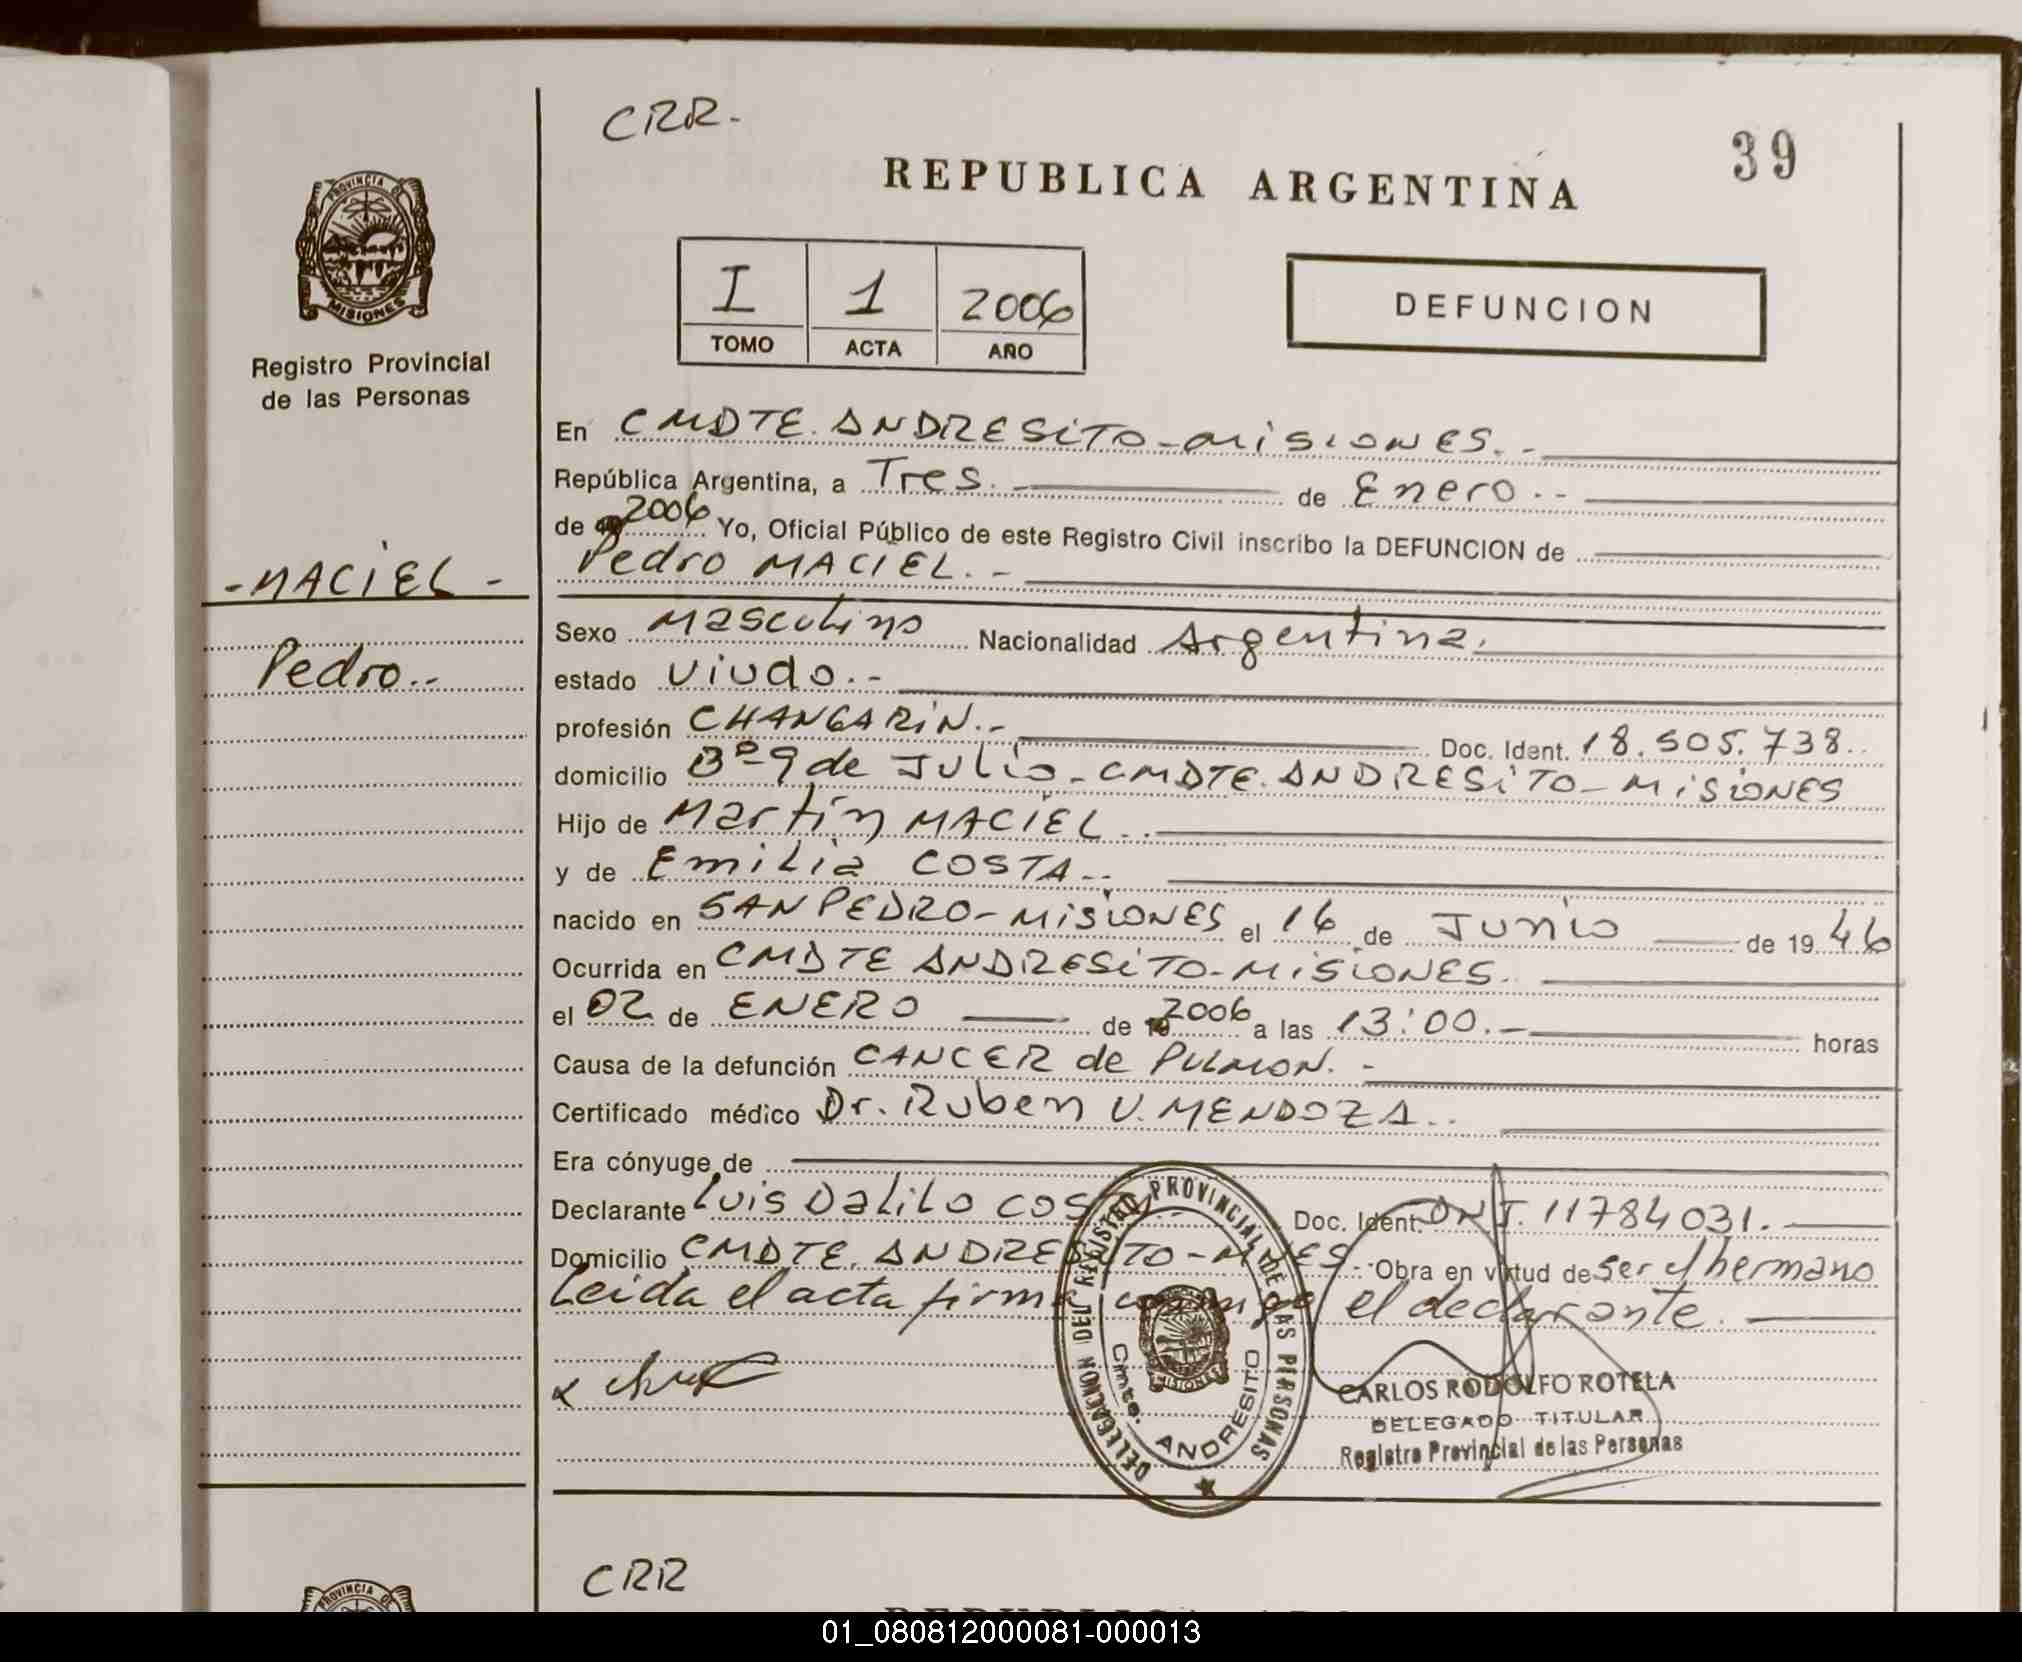 CRR.-
39
REPUBLICA ARGENTINA
PROVINCIA DE
MISIONES
Registro Provincial
de las Personas
I 1 2006
TOMO ACTA AÑO
DEFUNCION
En CMDTE. ANDRESiTO-MISIONES.-
República Argentina, a Tres. de Enero.-
de 19 2006 Yo, Oficial Público de este Registro Civil inscribo la DEFUNCION de
Pedro MACIEL.-
-MACIEL-
Pedro..
Sexo Masculino Nacionalidad Argentina.
estado Viudo.-
profesión CHANGARIN.- Doc. Ident. 18.505.738..
domicilio Bº-9 de Julio-CMDTE. ANDRESiTO-MiSiONES
Hijo de Martín MACIEL..
y de Emilia COSTA..
nacido en SAN PEDRO-MiSiONES el 16 de Junio de 19 46
Ocurrida en CMDTE ANDRESiTO-MiSiONES.
el 02 de ENERO de 19 2006 a las 13:00.- horas
Causa de la defunción CANCER de PULMON.-
Certificado médico Dr. Ruben V. MENDOZA..
Era cónyuge de
Declarante Luis Dalilo COSTA Doc. Ident. DNI. 11784031.
Domicilio CMDTE. ANDRESiTO-MNES.- Obra en virtud de ser el hermano
Leida el acta firma conmigo el declarante.
DELEGACION DEL REGISTRO PROVINCIAL DE LAS PERSONAS
Cmte. ANDRESITO
MISIONES
CARLOS RODOLFO ROTELA
DELEGADO TITULAR
Registro Provincial de las Personas
CRR
PROVINCIA DE
01_080812000081-000013